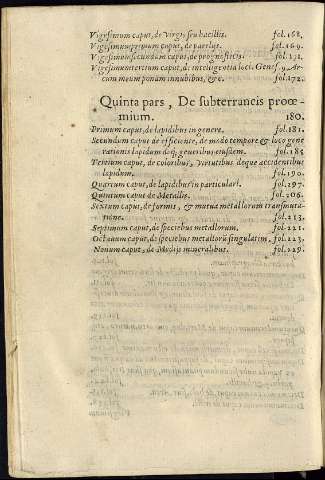 Vigesimum caput, de Virgis seu bacillis. fol. 168.
Vigesimumprimum caput, de paelijs. fol. 169.
Vigesimumsecundum caput, de prognosticis. fol. 171.
Vigesimumtertium caput, de intelligentia loci. Genes. 9. Ar-
cum meum ponam in nubibus, &c. fol. 172.
Quinta pars, De subterraneis prooe-
mium. 180.
Primum caput, de lapidibus in genere. fol. 181.
Secundum caput de efficiente, de modo tempore & loco gene
rationis lapidum deq́; fol. 185
Tertium caput, de coloribus, virtutibus deque accidentibus
lapidum. fol. 190.
Quartum caput, de lapidibus in particulari. fol. 197.
Quintum caput de Metallis. fol. 206.
Sextum caput, de formis, & mutua metallorum transmuta-
tione. fol. 213.
Septimum caput, de speciebus metallorum. fol. 221.
Octauum caput, de speciebus metallorū singulatim. fol. 223.
Nonum caput, de Medijs mineralibus. fol. 229.